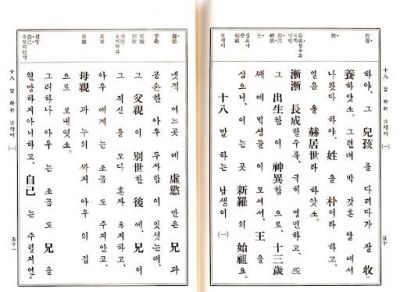 收養
하야, 그 兒孩를 다려다가 잘 收
養하얏소. 그런대 박 갓흔 알에서
나왓다 하야, 姓을 朴이라 하고,
일음을 赫居世라 하얏소.
漸漸 長成할수록, 극히 영민하고, 또
그 出生이 神異함으로, 十三歲
쌔에 백성들이 모셔서, 王을
삼으니, 이는 곳 新羅의 始祖요.
十八 말하는 남생이 (一)
十八 말 하는 남생이 (一)
五十
虛慾
공손
父親
別世
母親
自己
녯적 어느 곳에 虛慾 만은 兄과
공손한 아우 두 사람이 잇섯는데,
그 父親이 別世한 後에, 兄이
그 재산을 모다 혼자 차지하고,
아우에게는 조곰도 주지안코,
母親과 누의까지 아우의 집
으로 보내엿소.
그러하나 아우는 조곰도 兄을
원망하지아니하고, 自己는 주릴지언
十八 말 하는 남생이 (一)
五十一